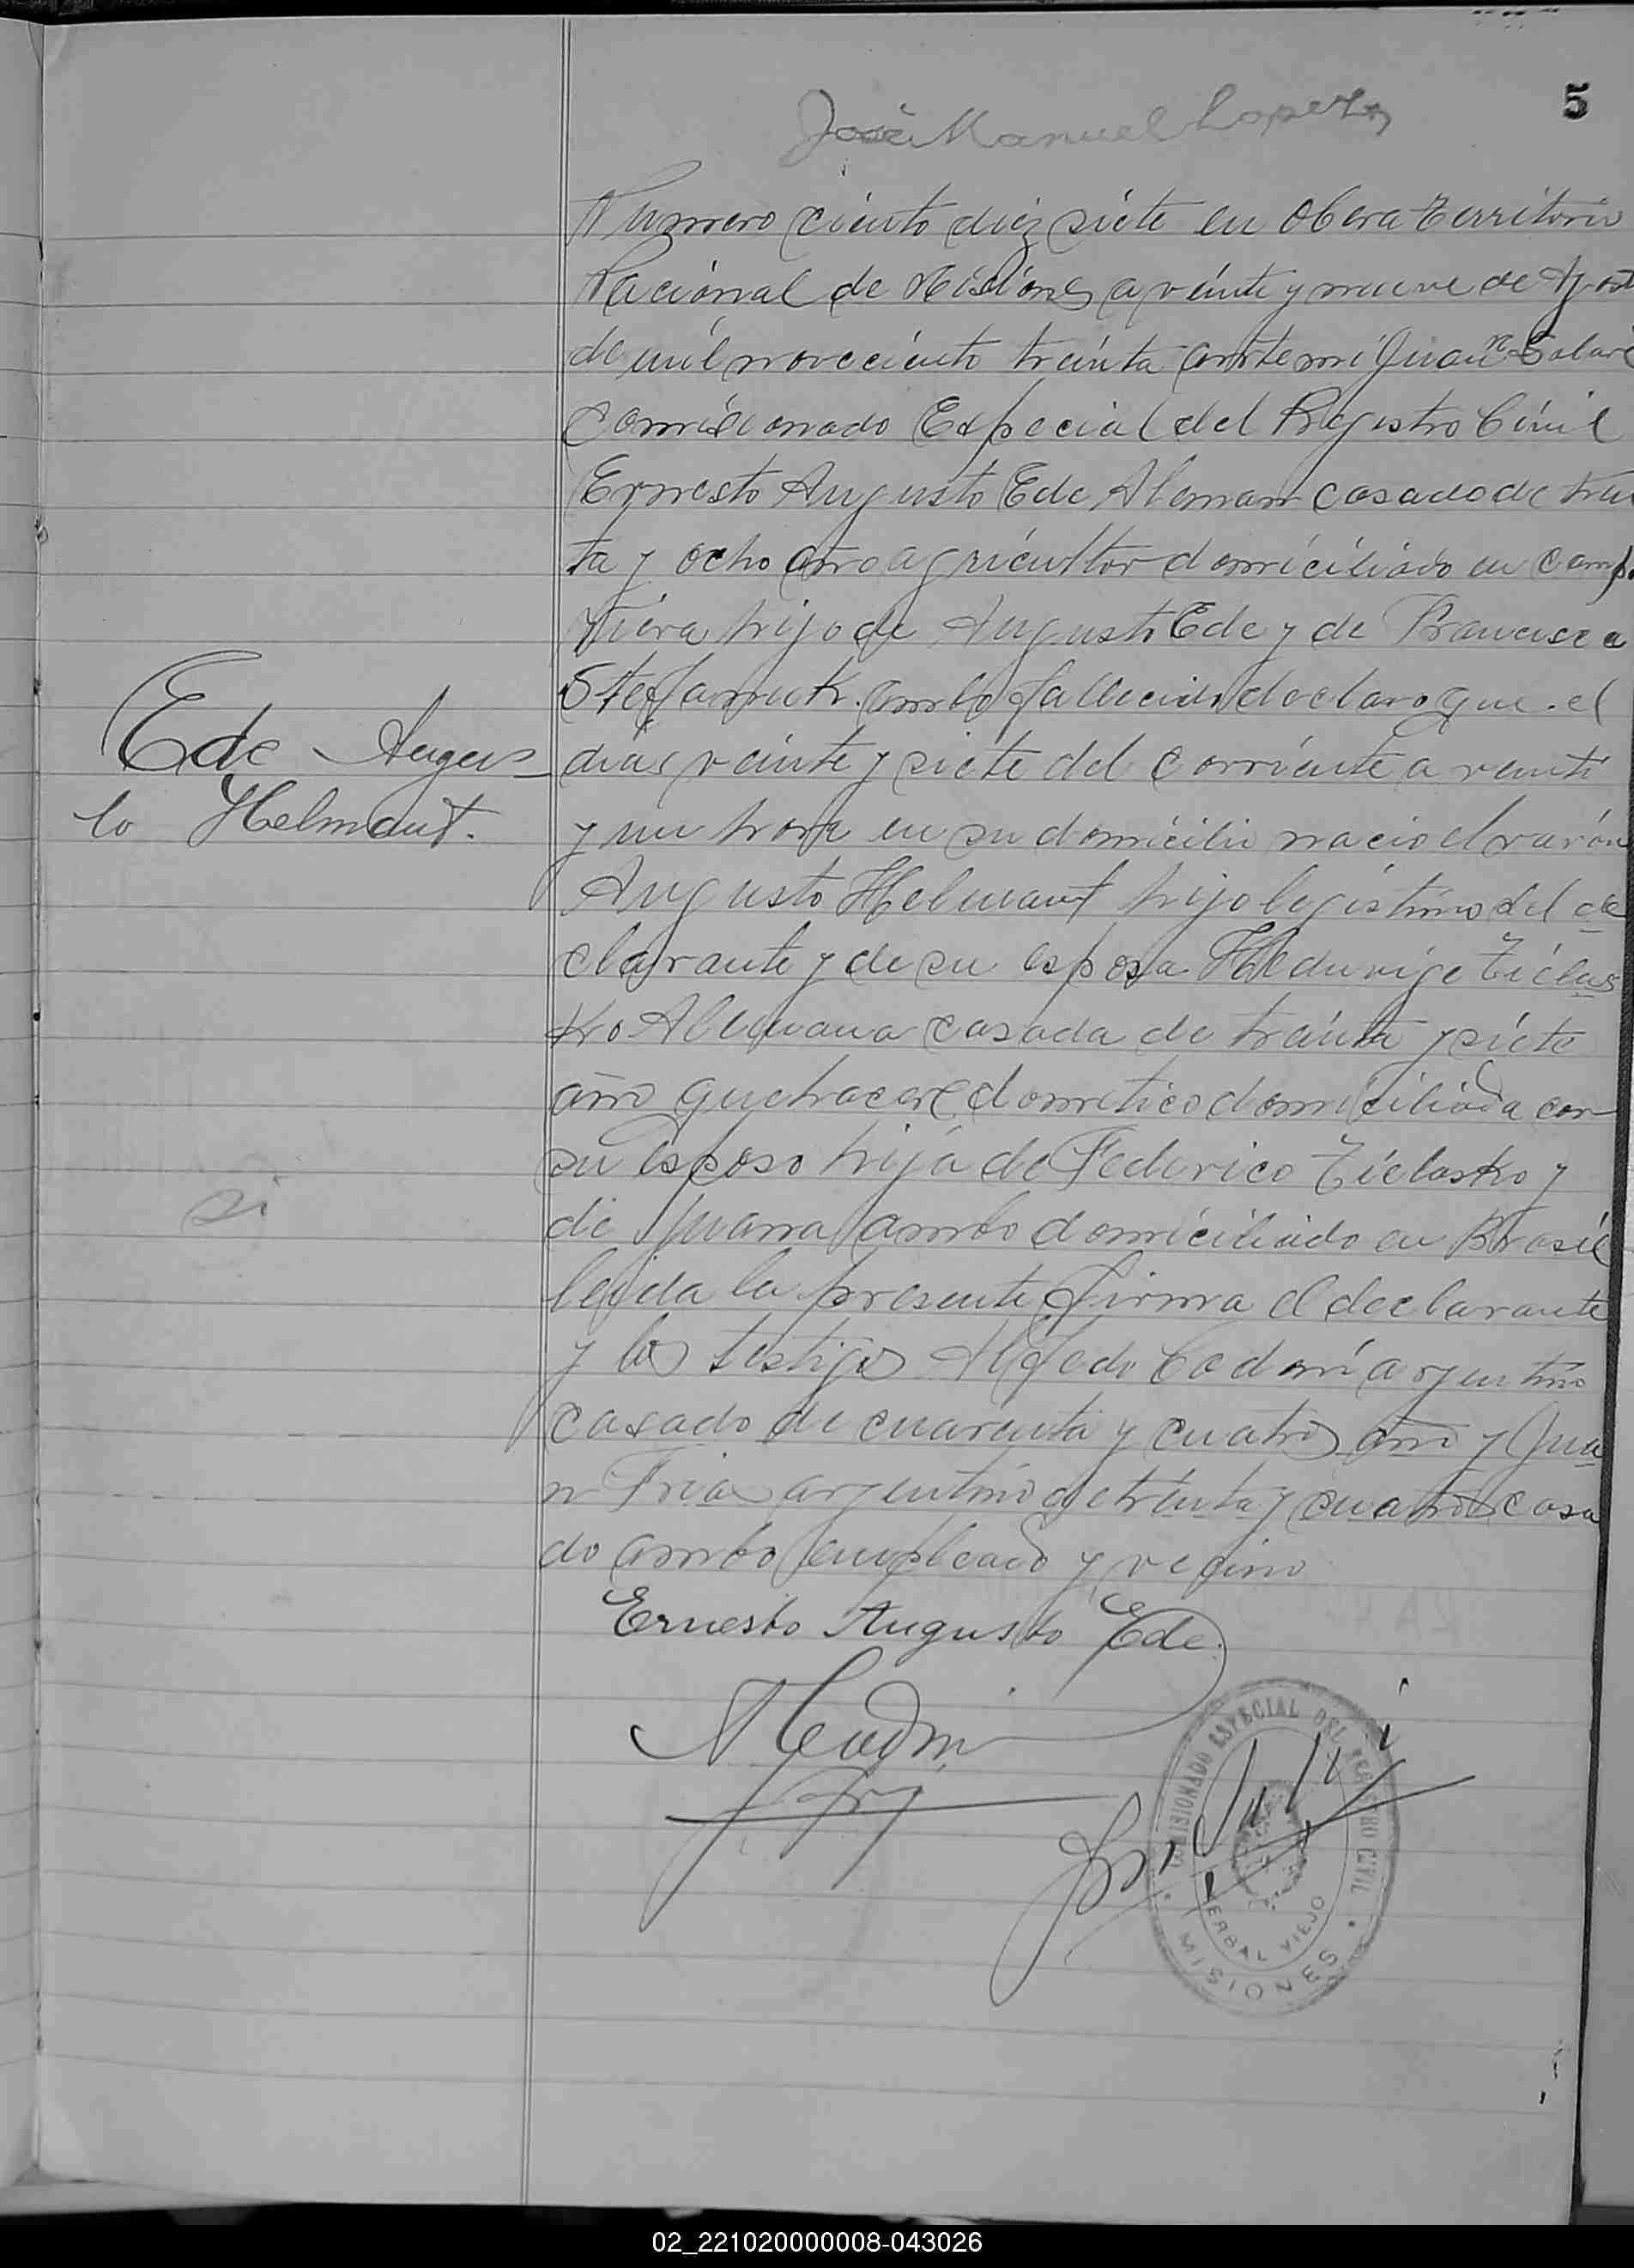 5
José Manuel Lopez
Numero ciento diez siete en Obera territorio
Nacional de Misiones a veinte y nueve de Agost
de mil noveciento treinta ante mi Juan
Comisionado Especial del Registro Civil
Ernesto Augusto Ede Aleman casado de trein
ta y ocho año agricultor domiciliado en Campo
Viera hijo de Augusto Ede y de Francisca
ambo fallecido declaro que el
dias veinte y siete del corriente a veinti
y un hora en su domicilio nacio el varón
Ede Augus-
to Helmaut.
Augusto Helmaut hijo legistimo del de
clarante y de su esposa Heduvige Zielas
ko Alemana casada de trainta y siete
año quehacere dometico domiciliada con
su esposo hija de Federico Zielasko y
si
de Juana ambo domiciliado en Brasil
leida la presente firma el declarante
y los testigos Alfedo Codoni argentino
casado de cuarenta y cuatro año y Jua
n Fria argentino de treinta y cuatro casa
do ambo empleado y vecino
Ernesto Augusto Ede.
COMISIONADO ESPECIAL DEL REGISTRO CIVIL
YERBAL VIEJO
MISIONES
02_221020000008-043026